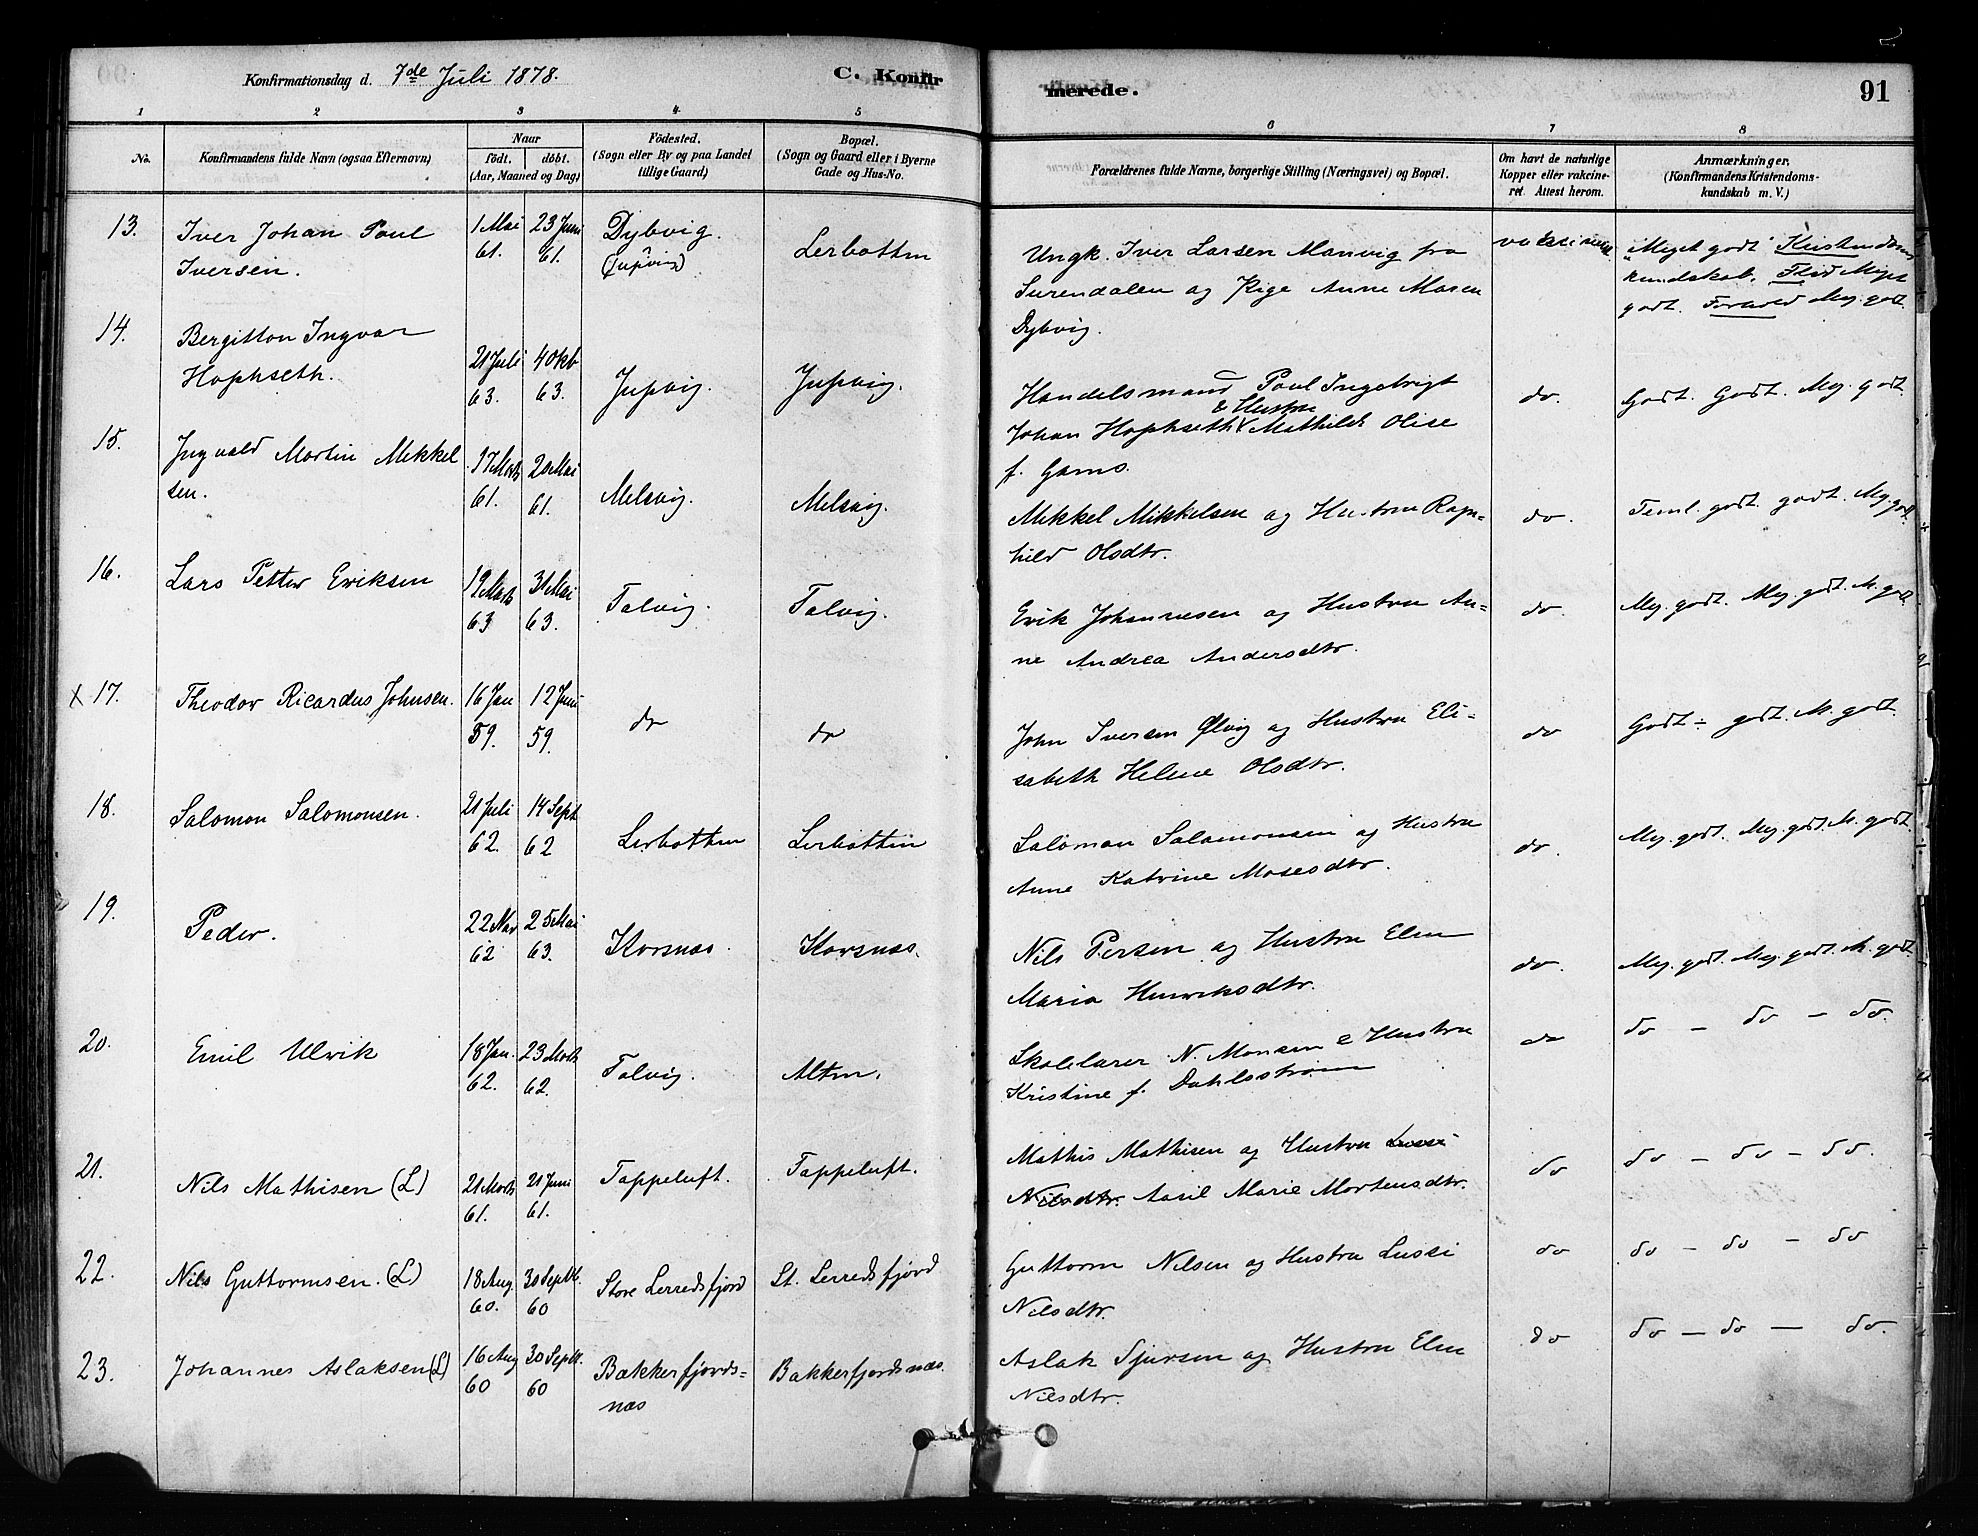 Konfirmationsdag d. 7de Juli 1878.
C. Konfirmerede.
91
1 2 3 4 5 6 7 8
No.
Konfirmandens fulde Navn (ogsaa Efternavn)
Naar
födt. döbt.
(Aar, Maaned og Dag)
Födested.
(Sogn eller By og paa Landet
tillige Gaard)
Bopæl.
(Sogn og Gaard eller i Byerne
Gade og Hus-No.
Forældrenes fulde Navne, borgerlige Stilling (Næringsvei) og Bopæl.
Om havt de naturlige
Kopper eller vakcine-
ret. Attest herom.
Anmærkninger.
(Konfirmandens Kristendoms-
kundskab m. V.)
13. Iver Johan Paul
Iversen.
1 Mai
61.
23 Juni
61.
Dybvig.
(Jupvig)
Lerbotten
Ungk. Iver Larsen Manvig fra
Surendalen og Pige Anne Maren
Dybvig.
Meget godt Kristendoms
kundskab. Flid Meget
godt. Forhold Meg. godt.
14. Bergitton Ingvar
Hophseth.
21 Juli
63.
4 Okb
63.
Jupvig.
Jupvig.
Handelsmand Paul Ingebrigt
Johan Hophseth & Hustru Mathilde Olise
f. Gams.
do.
Godt. Godt. Meg. godt.
15. Ingvald Martin Mikkel
sen.
17 Marts
61.
20 Mai
61.
Melsvig.
Melsvig.
Mikkel Mikkelsen og Hustru Ragn-
hild Olsdtr.
do.
Teml. godt. godt. Meg. godt.
16. Lars Petter Eriksen
19 Marts
63
31 Mai
63.
Talvig.
Talvig.
Erik Johannesen og Hustru An-
ne Andrea Andersdtr.
do.
Meg. godt. Meg. godt. M. godt.
x 17. Theodor Ricardus Johnsen.
16 Jan
59.
12 Juni
59.
do
do
John Iversen Ølvig og Hustru Eli-
sabeth Helene Olsdtr.
do
Godt ÷ godt. M. godt.
18. Salomon Salomonsen.
21 Juli
62.
14 Sept
62
Lerbotten
Lerbotten
Salomon Salamonsen og Hustru
Anne Katrine Mosesdtr.
do.
Meg. godt. Meg. godt. M. godt.
19. Peder.
22 Nov
62
25 Mai
63.
Korsnæs.
Korsnæs.
Nils Persen og Hustru Elen
Maria Henriksdtr.
do.
Meg. godt. Meg. godt. M. godt.
20. Emil Ulvik
18 Jan.
62.
23 Marts
62.
Talvig.
Alten.
Skolelærer N. Monsen & Hustru
Kristine f. Dahlsstrøm
do
do — do — do.
21. Nils Mathisen (L)
21 Marts
61.
21 Juni
61.
Tappeluft.
Tappeluft.
Mathis Mathisen og Hustru Lussi
Nilsdtr. Marie Mortensdtr.
do
do — do — do.
22. Nils Guttormsen. (L)
18 Aug.
60.
30 Septb.
60
Store Lerredsfjord
St. Lerredsfjord
Guttorm Nilsen og Hustru Lussi
Nilsdtr.
do
do — do — do
23. Johannes Aslaksen (L)
16 Aug
60
30 Septb.
60
Bækkerfjords-
næs
Bakkerfjordsnæs.
Aslak Sjursen og Hustru Elen
Nilsdtr.
do
do — do — do.